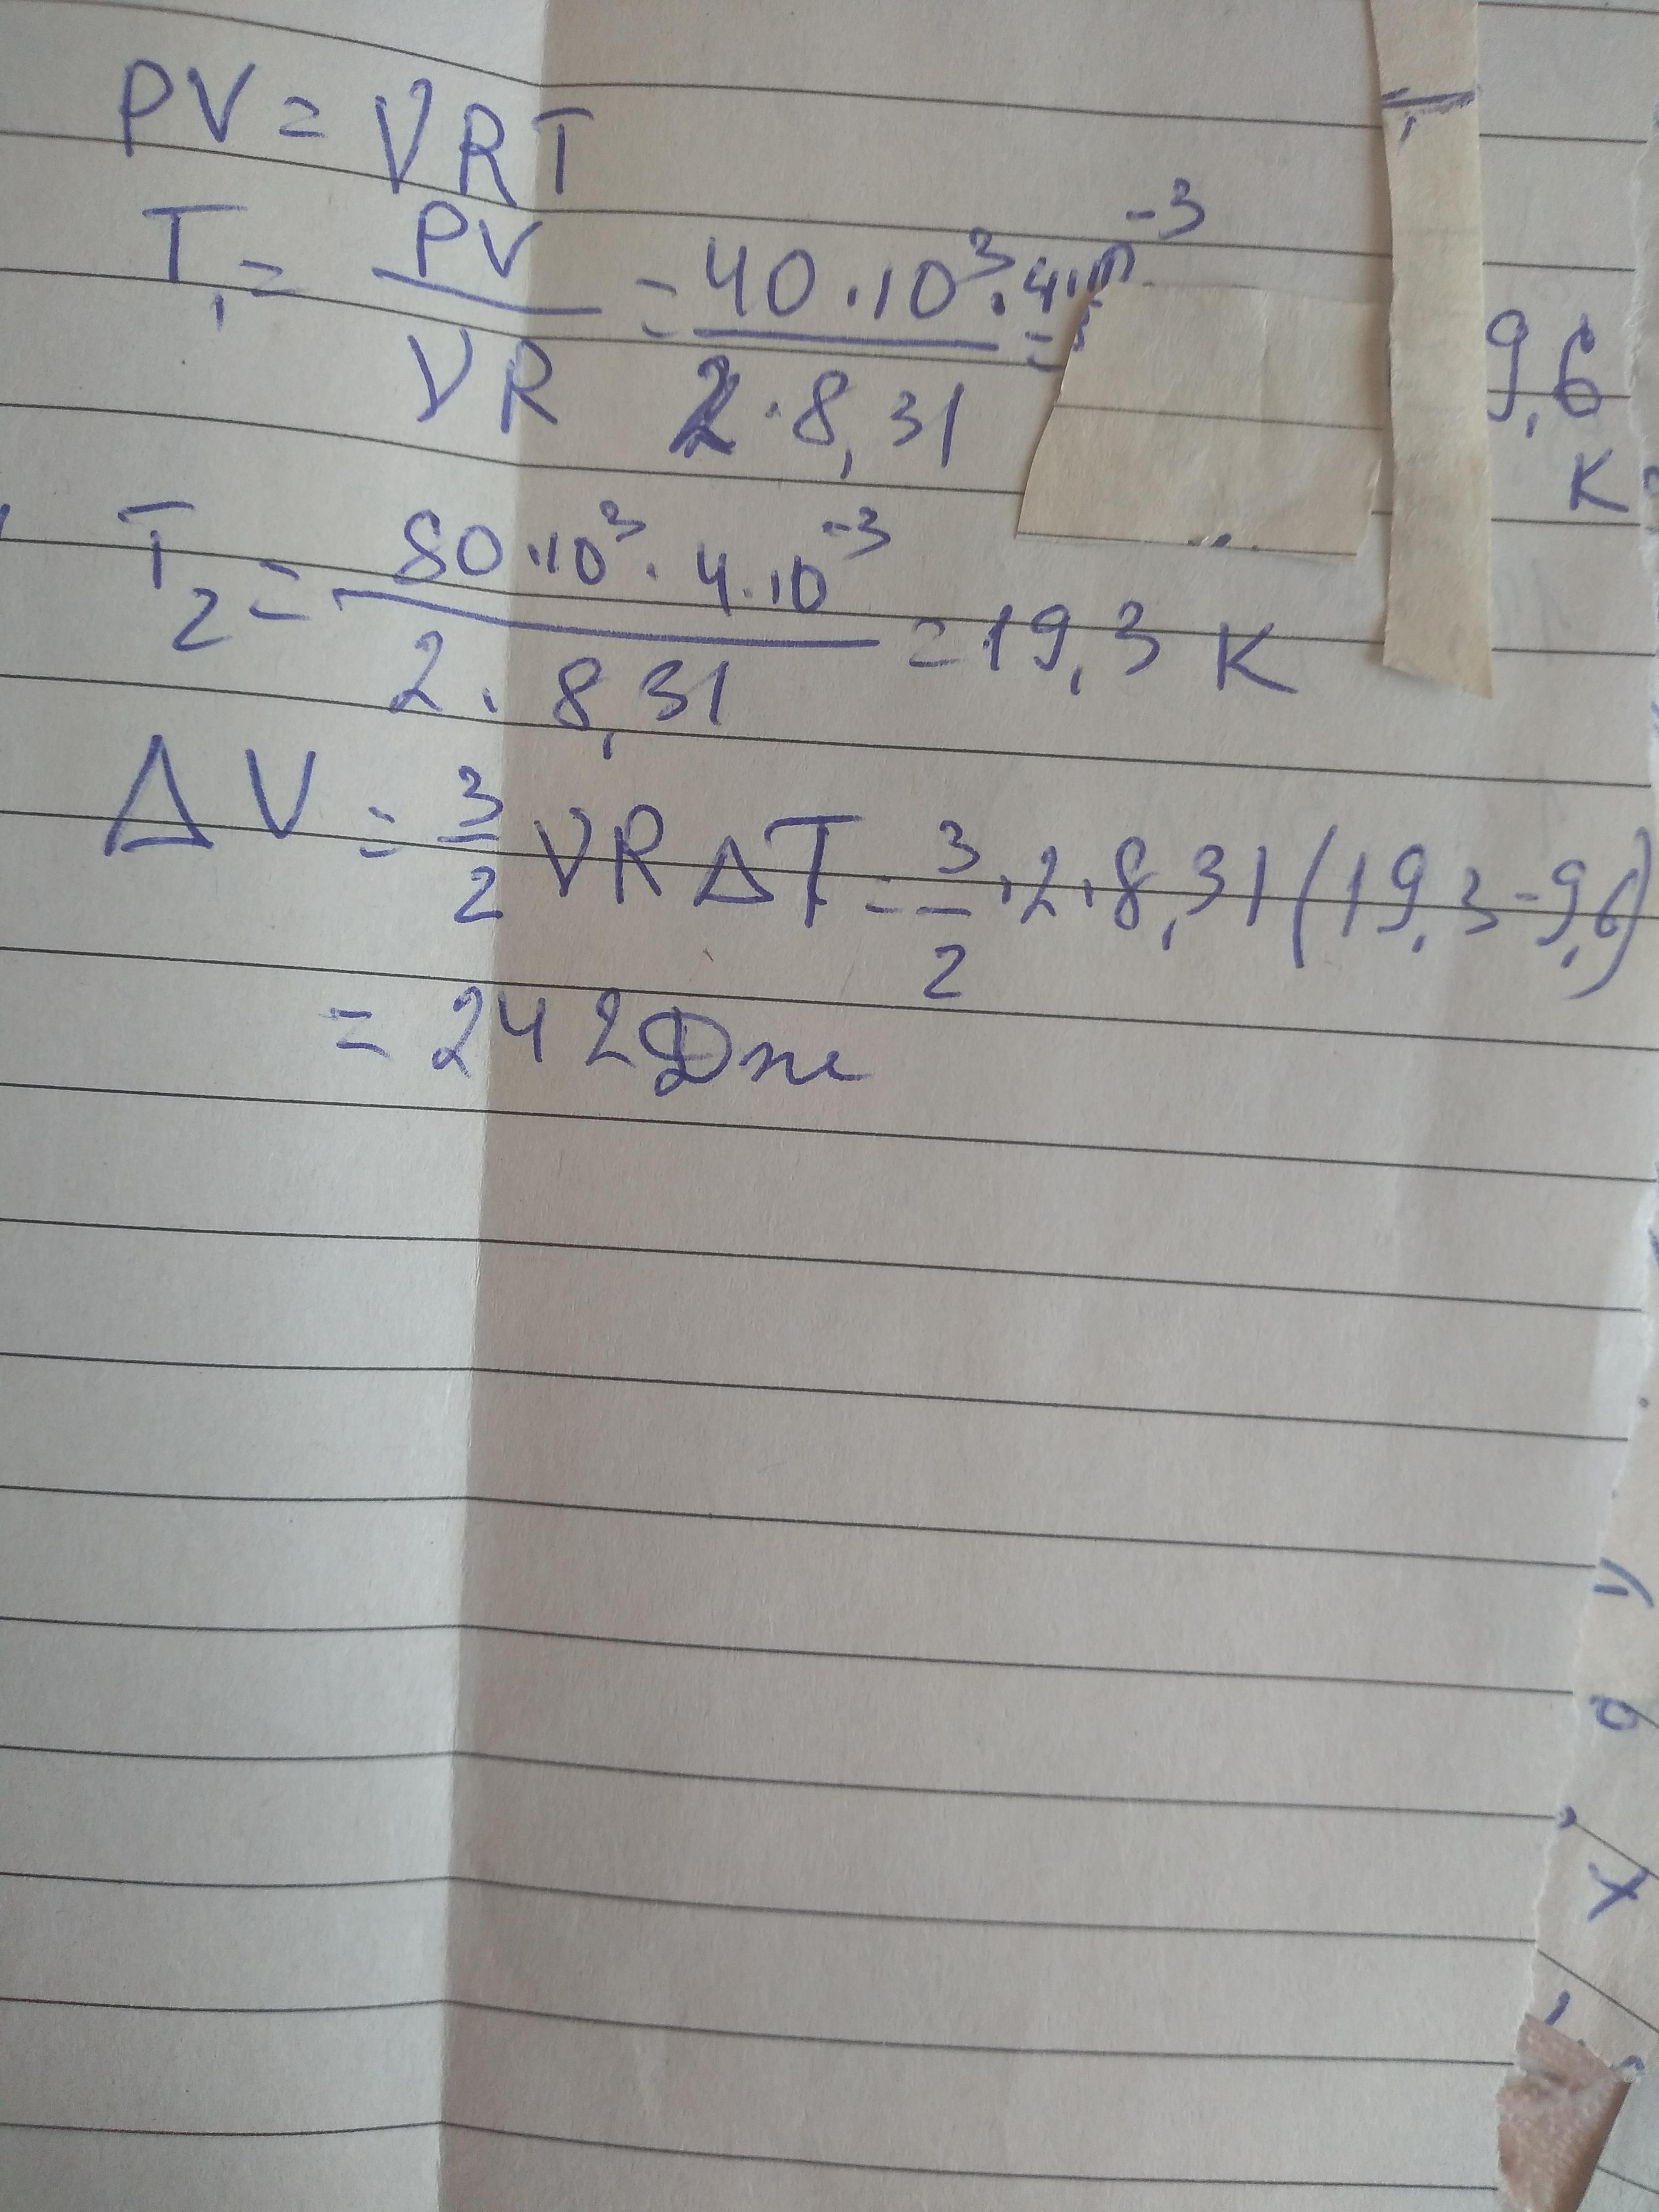 PV = νRT
T₁ = PV / νR = 40·10³·4·10⁻³ / 2·8,31 = 9,6 K
T₂ = 80·10³·4·10⁻³ / 2·8,31 = 19,3 K
ΔV = 3/2 νRΔT = 3/2·2·8,31(19,3-9,6)
= 242 Дж